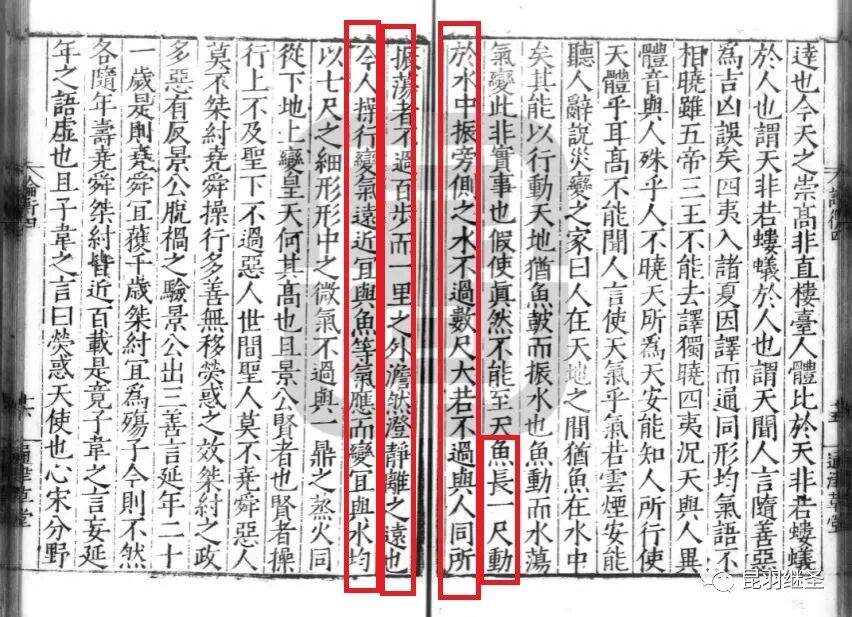 達也今天之崇高非直樓臺人體比於天非若螻蟻
於人也謂天非若螻蟻於人也謂天聞人言隨善惡
為吉凶誤矣四夷入諸夏因譯而通同形均氣語不
相曉雖五帝三王不能去譯獨曉四夷況天與人異
體音與人殊乎人不曉天所為天安能知人所行使
天體乎耳高不能聞人言使天氣乎氣若雲煙安能
聽人辭說災變之家曰人在天地之間猶魚在水中
矣其能以行動天地猶魚鼓而振水也魚動而水蕩
氣變此非實事也假使真然不能至天魚長一尺動
於水中振旁側之水不過數尺大若不過與人同所
振蕩者不過百步而一里之外澹然澄靜離之遠也
今人操行變氣遠近宜與魚等氣應而變宜與水均
以七尺之細形形中之微氣不過與一鼎之蒸火同
從下地上變皇天何其高也且景公賢者也賢者操
行上不及聖下不過惡人世間聖人莫不堯舜惡人
莫不桀紂堯舜操行多善無移熒惑之效桀紂之政
多惡有反景公脫禍之驗景公出三善言延年二十
一歲是則堯舜宜獲千歲桀紂宜為殤子今則不然
各隨年壽堯舜桀紂皆近百載是竟子韋之言妄延
年之語虛也且子韋之言曰熒惑天使也心宋分野
論衡四
十五
通津草堂
論衡四
十六
通津草堂
昆羽继圣